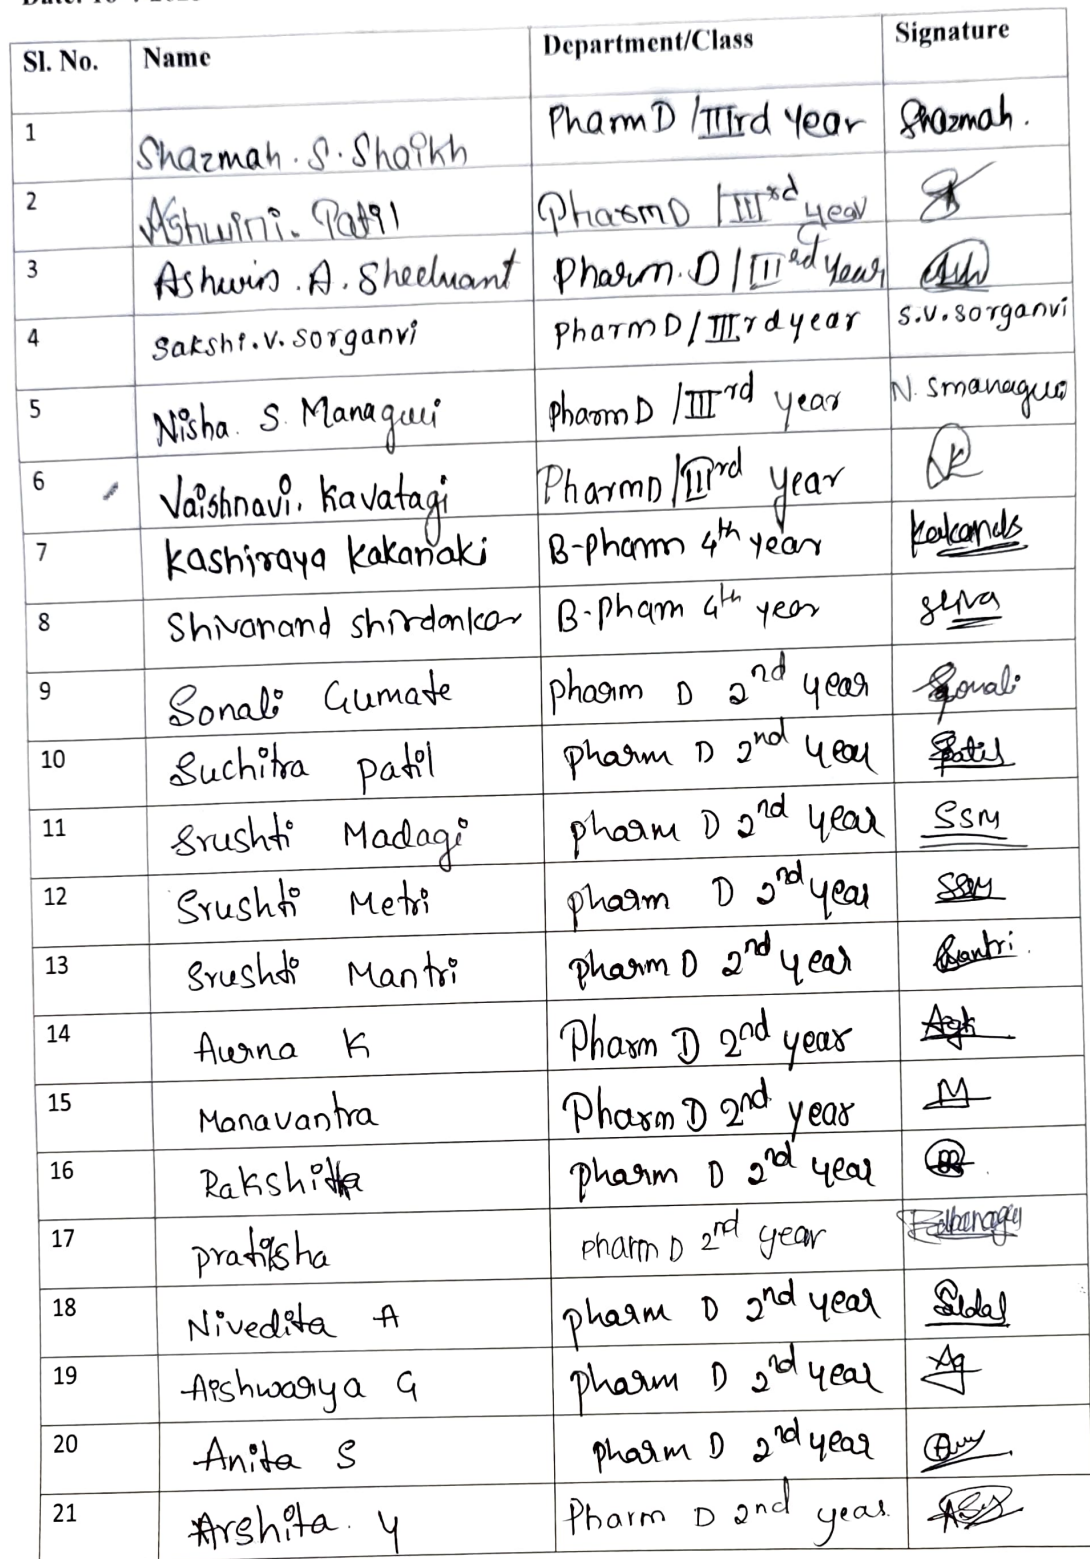 Sl. No. Name Department/Class Signature
1 Shazmah. S. Shaikh PharmD /IIIrd year Shazmah.
2 Ashwini. Patil PharmD /IIIrd year
3 Ashwin. A. Sheelvant Pharm. D/IIIrd year
4 Sakshi.v. sorganvi PharmD/IIIrd year S.V.sorganvi
5 Nisha. S. Managuli PharmD /IIIrd year N. Smanaguli
6 Vaishnavi. Kavatagi PharmD/IIIrd year
7 Kashiraya Kakanaki B-pharm 4th year
8 Shivanand shirdonkar B-Pham 4th year
9 Sonali Gumate pharm D 2nd year Sonali
10 Suchitra patil pharm D 2nd year Patil
11 Srushti Madagi pharm D 2nd year SSM
12 Srushti Metri pharm D 2nd year SSM
13 Srushti Mantri pharm D 2nd year
14 Aurna K Pharm D 2nd year
15 Manavantra Pharm D 2nd year M
16 Rakshitta pharm D 2nd year
17 pratiksha pharm D 2nd year
18 Nivedita A pharm D 2nd year
19 Aishwarya G pharm D 2nd year Ag
20 Anita S pharm D 2nd year
21 Arshita. Y Pharm D 2nd year.